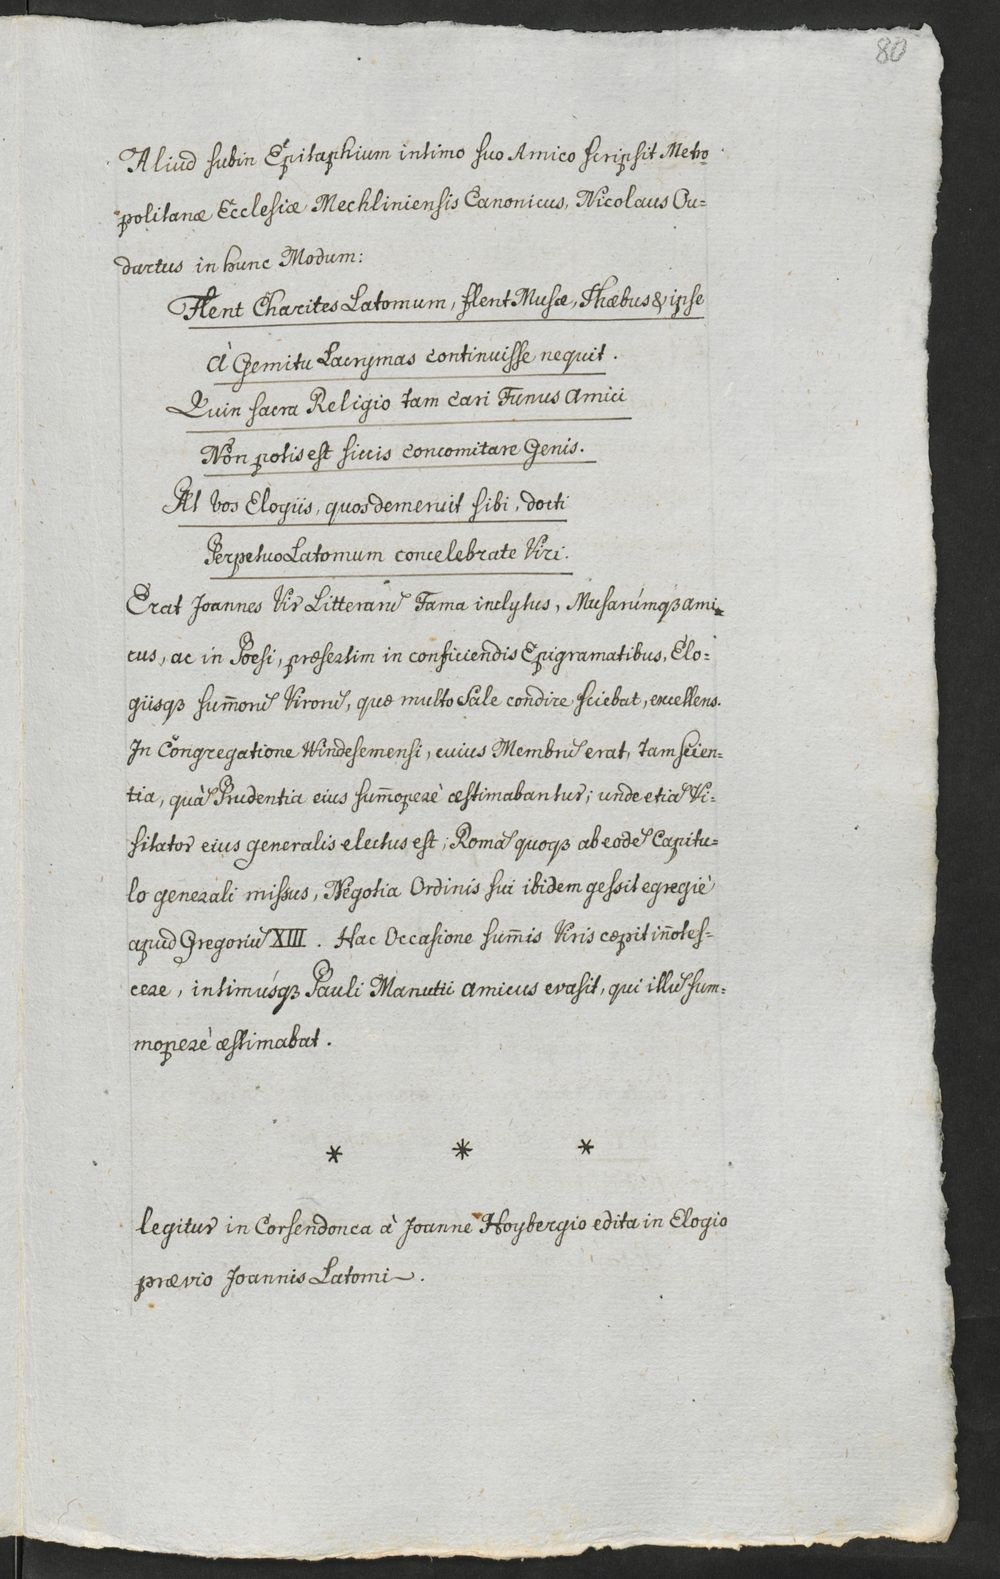 80
Aliud subin Epitaphium intimo suo Amico scripsit Metro
politanæ Ecclesiæ Mechliniensis Canonicus, Nicolaus Ou=
dartus in hunc Modum:
Flent Charites Latomum, flent Musæ, Phæbus & ipse
à Gemitu Lacrymas continuisse nequit.
Quin sacra Religio tam cari Funus Amici
Non potis est siccis concomitare Genis.
At vos Elogiis, quos demeruit sibi, docti
Perpetuo Latomum concelebrate Viri.
Erat Joannes Vir Litterarū Fama inclytus, Musarúmqꝫ ami=
cus, ac in Poesi, præsertim in conficiendis Epigramatibus, Elo=
giisqꝫ sum̄orū Virorū, quæ multo Sale condire sciebat, excellens.
In Congregatione Windesemensi, cuius Membrū erat, tam scien=
tia, quā Prudentia eius sum̄operè æstimabantur; unde etiā Vi=
sitator eius generalis electus est; Romā quoqꝫ ab eodē Capitu=
lo generali missus, Negotia Ordinis sui ibidem gessit egregiè
apud Gregoriū XIII. Hac Occasione sum̄is Viris cæpit in̄otes=
cere, intimúsqꝫ Pauli Manutii amicus evasit, qui illū sum=
moperè æstimabat.
* * *
legitur in Corsendonca à Joanne Hoybergio edita in Elogio
prævio Joannis Latomi.